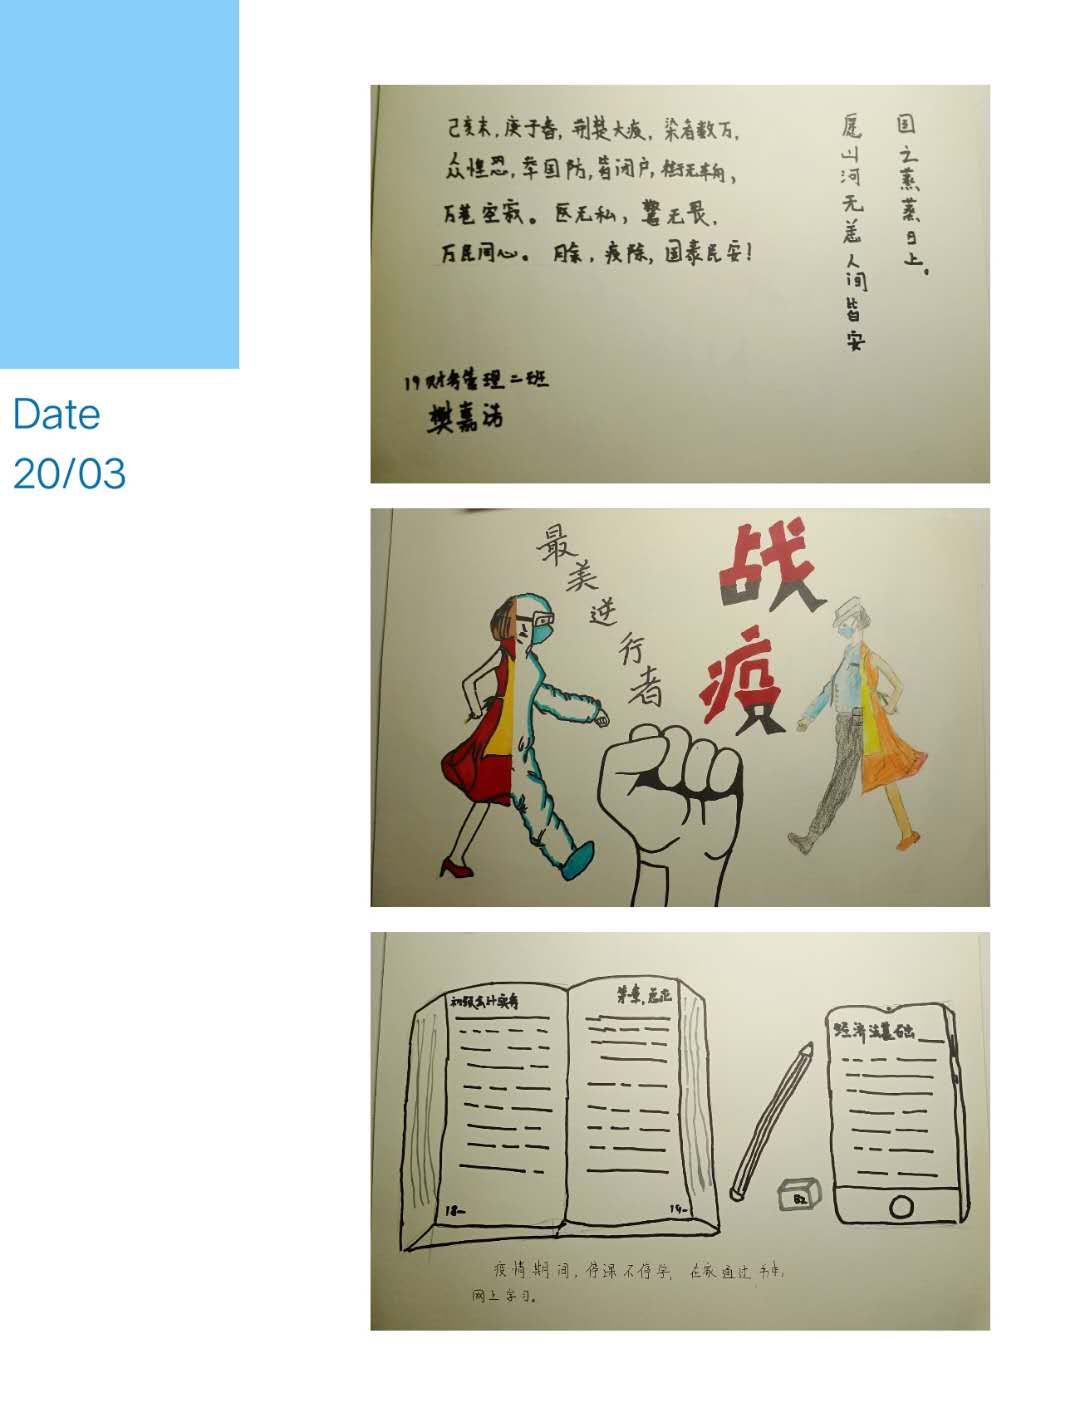 Date
20/03
己亥末，庚子春，荆楚大疫，染者数万，
众惶恐，举国防，皆闭户，街无车舟，
万巷空寂。医无私，警无畏，
万民同心。月余，疫除，国泰民安！
国之蒸蒸日上。
愿山河无恙人间皆安
19财务管理二班
樊嘉浩
最美逆行者
战疫
初级会计实务
第一章，总论
18-
19-
经济法基础
B2
疫情期间，停课不停学，在家通过书本，
网上学习。